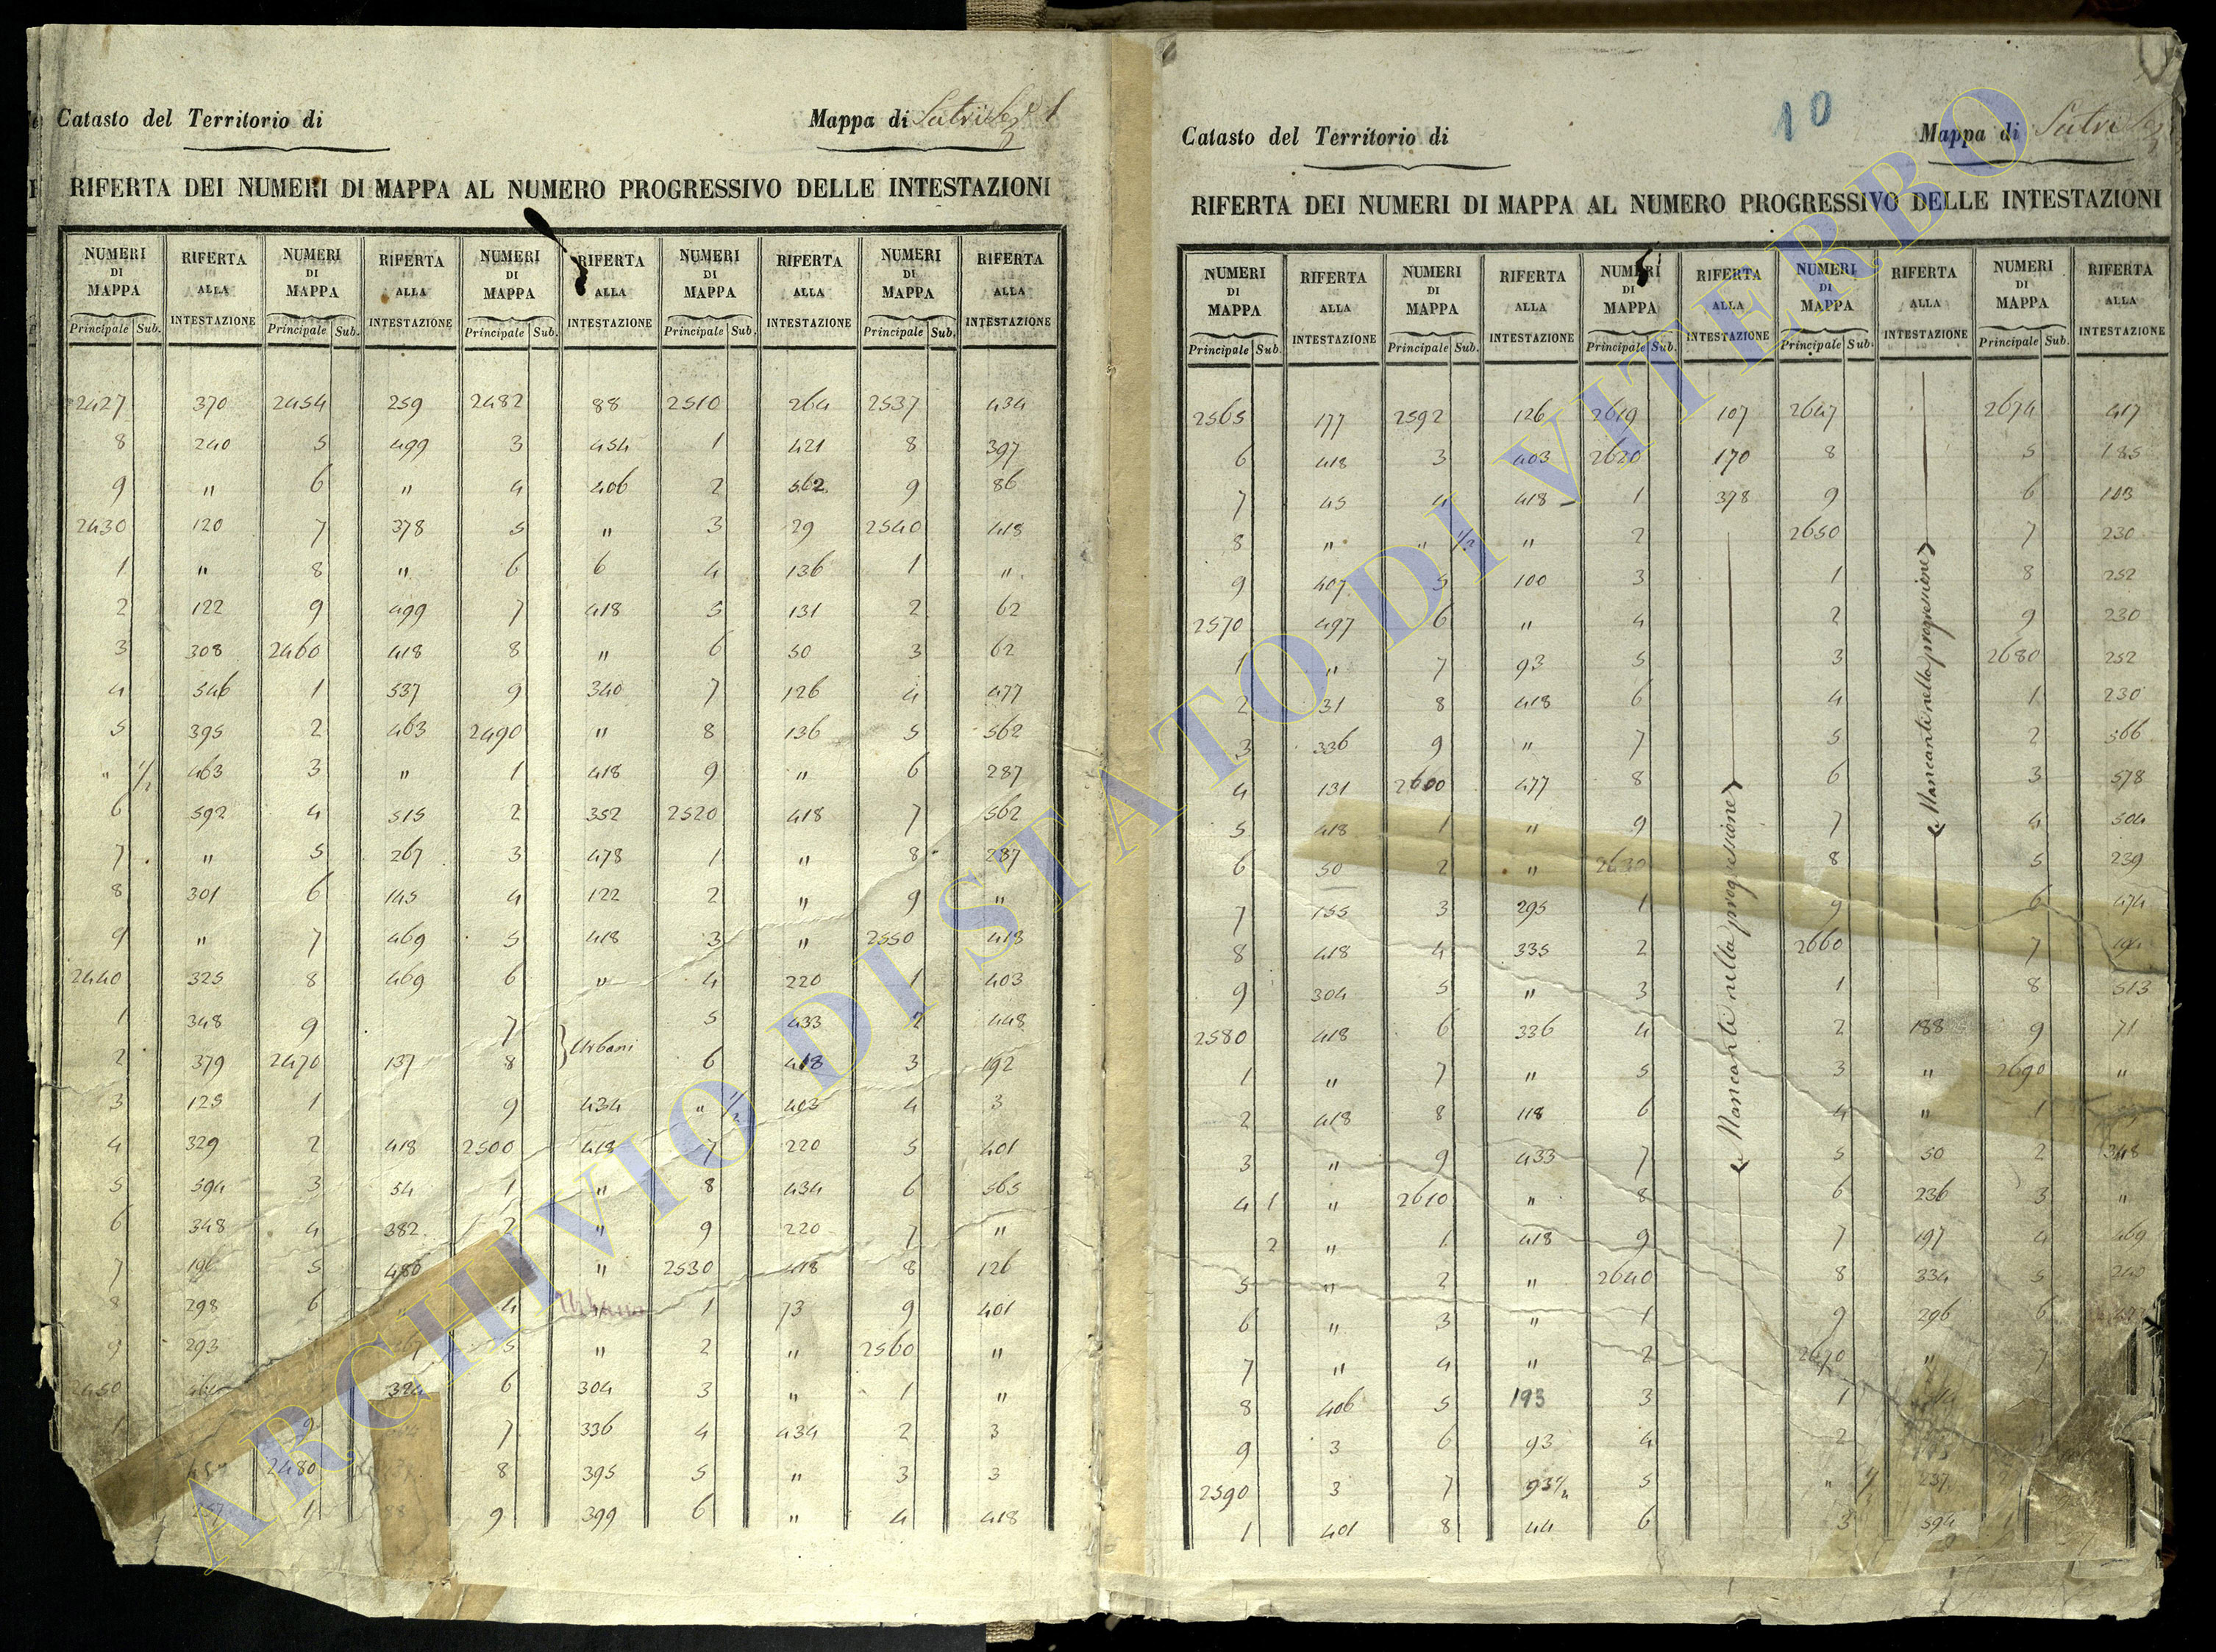 Catasto del Territorio di
Mappa di Sutri Sez. 1
RIFERTA DEI NUMERI DI MAPPA AL NUMERO PROGRESSIVO DELLE INTESTAZIONI
NUMERI DI MAPPA RIFERTA ALLA INTESTAZIONE NUMERI DI MAPPA RIFERTA ALLA INTESTAZIONE NUMERI DI MAPPA RIFERTA ALLA INTESTAZIONE NUMERI DI MAPPA RIFERTA ALLA INTESTAZIONE NUMERI DI MAPPA RIFERTA ALLA INTESTAZIONE
Principale Sub. Principale Sub. Principale Sub. Principale Sub. Principale Sub.
2427 370 2454 259 2482 88 2510 264 2537 434
8 240 5 499 3 454 1 421 8 397
9 " 6 " 4 406 2 562 9 86
2430 120 7 378 5 " 3 29 2540 418
1 " 8 " 6 6 4 136 1 "
2 122 9 499 7 418 5 131 2 62
3 308 2460 418 8 " 6 50 3 62
4 546 1 537 9 340 7 126 4 477
5 395 2 463 2490 " 8 136 5 562
" 1/2 463 3 " 1 418 9 " 6 287
6 592 4 515 2 352 2520 418 7 562
7 " 5 267 3 478 1 " 8 287
8 301 6 145 4 122 2 " 9 "
9 " 7 469 5 418 3 " 2550 418
2440 325 8 469 6 " 4 220 1 403
1 348 9 7 Urbani 5 433 2 448
2 379 2470 137 8 6 418 3 192
3 125 1 9 434 " 1/2 403 4 3
4 329 2 418 2500 418 7 220 5 401
5 594 3 54 1 " 8 434 6 565
6 348 4 382 2 " 9 220 7 "
7 5 480 " 2530 418 8 126
8 298 6 4 1 73 9 401
9 293 5 " 2 " 2560 "
2450 6 304 3 " 1 "
9 7 336 4 434 2 3
2480 8 395 5 " 3 3
257 1 9 399 6 " 4 418
10
Catasto del Territorio di
Mappa di Sutri
RIFERTA DEI NUMERI DI MAPPA AL NUMERO PROGRESSIVO DELLE INTESTAZIONI
NUMERI DI MAPPA RIFERTA ALLA INTESTAZIONE NUMERI DI MAPPA RIFERTA ALLA INTESTAZIONE NUMERI DI MAPPA RIFERTA ALLA INTESTAZIONE NUMERI DI MAPPA RIFERTA ALLA INTESTAZIONE NUMERI DI MAPPA RIFERTA ALLA INTESTAZIONE
Principale Sub. Principale Sub. Principale Sub. Principale Sub. Principale Sub.
2565 177 2592 126 2619 107 2647 2674 417
6 418 3 403 2620 170 8 5 185
7 45 4 418 1 378 9 6 103
8 " " 1/2 " 2 2650 7 230
9 407 5 100 3 1 8 252
2570 497 6 " 4 2 9 230
1 " 7 93 5 3 2680 252
2 31 8 418 6 4 1 230
3 336 9 " 7 5 2 566
4 131 2600 477 8 6 3 578
5 418 1 " 9 7 4 504
6 50 2 " 2630 8 5 239
7 155 3 295 1 9 6 474
8 418 4 335 2 2660 7 194
9 304 5 " 3 1 8 513
2580 418 6 336 4 2 188 9 71
1 " 7 " 5 3 " 2690 "
2 418 8 118 6 4 " 1
3 " 9 433 7 5 50 2 348
4 1 " 2610 " 8 6 236 3 "
2 " 1 418 9 7 197 4 469
5 " 2 " 2640 8 334 5 240
6 " 3 " 1 9 296 6
7 " 4 " 2 2670 "
8 406 5 193 3 1
9 3 6 93 4 2
2590 3 7 93 1/2 5 " 237
1 401 8 44 6 3 594
Mancanti nella progressione
Mancanti nella progressione
ARCHIVIO DI STATO DI VITERBO